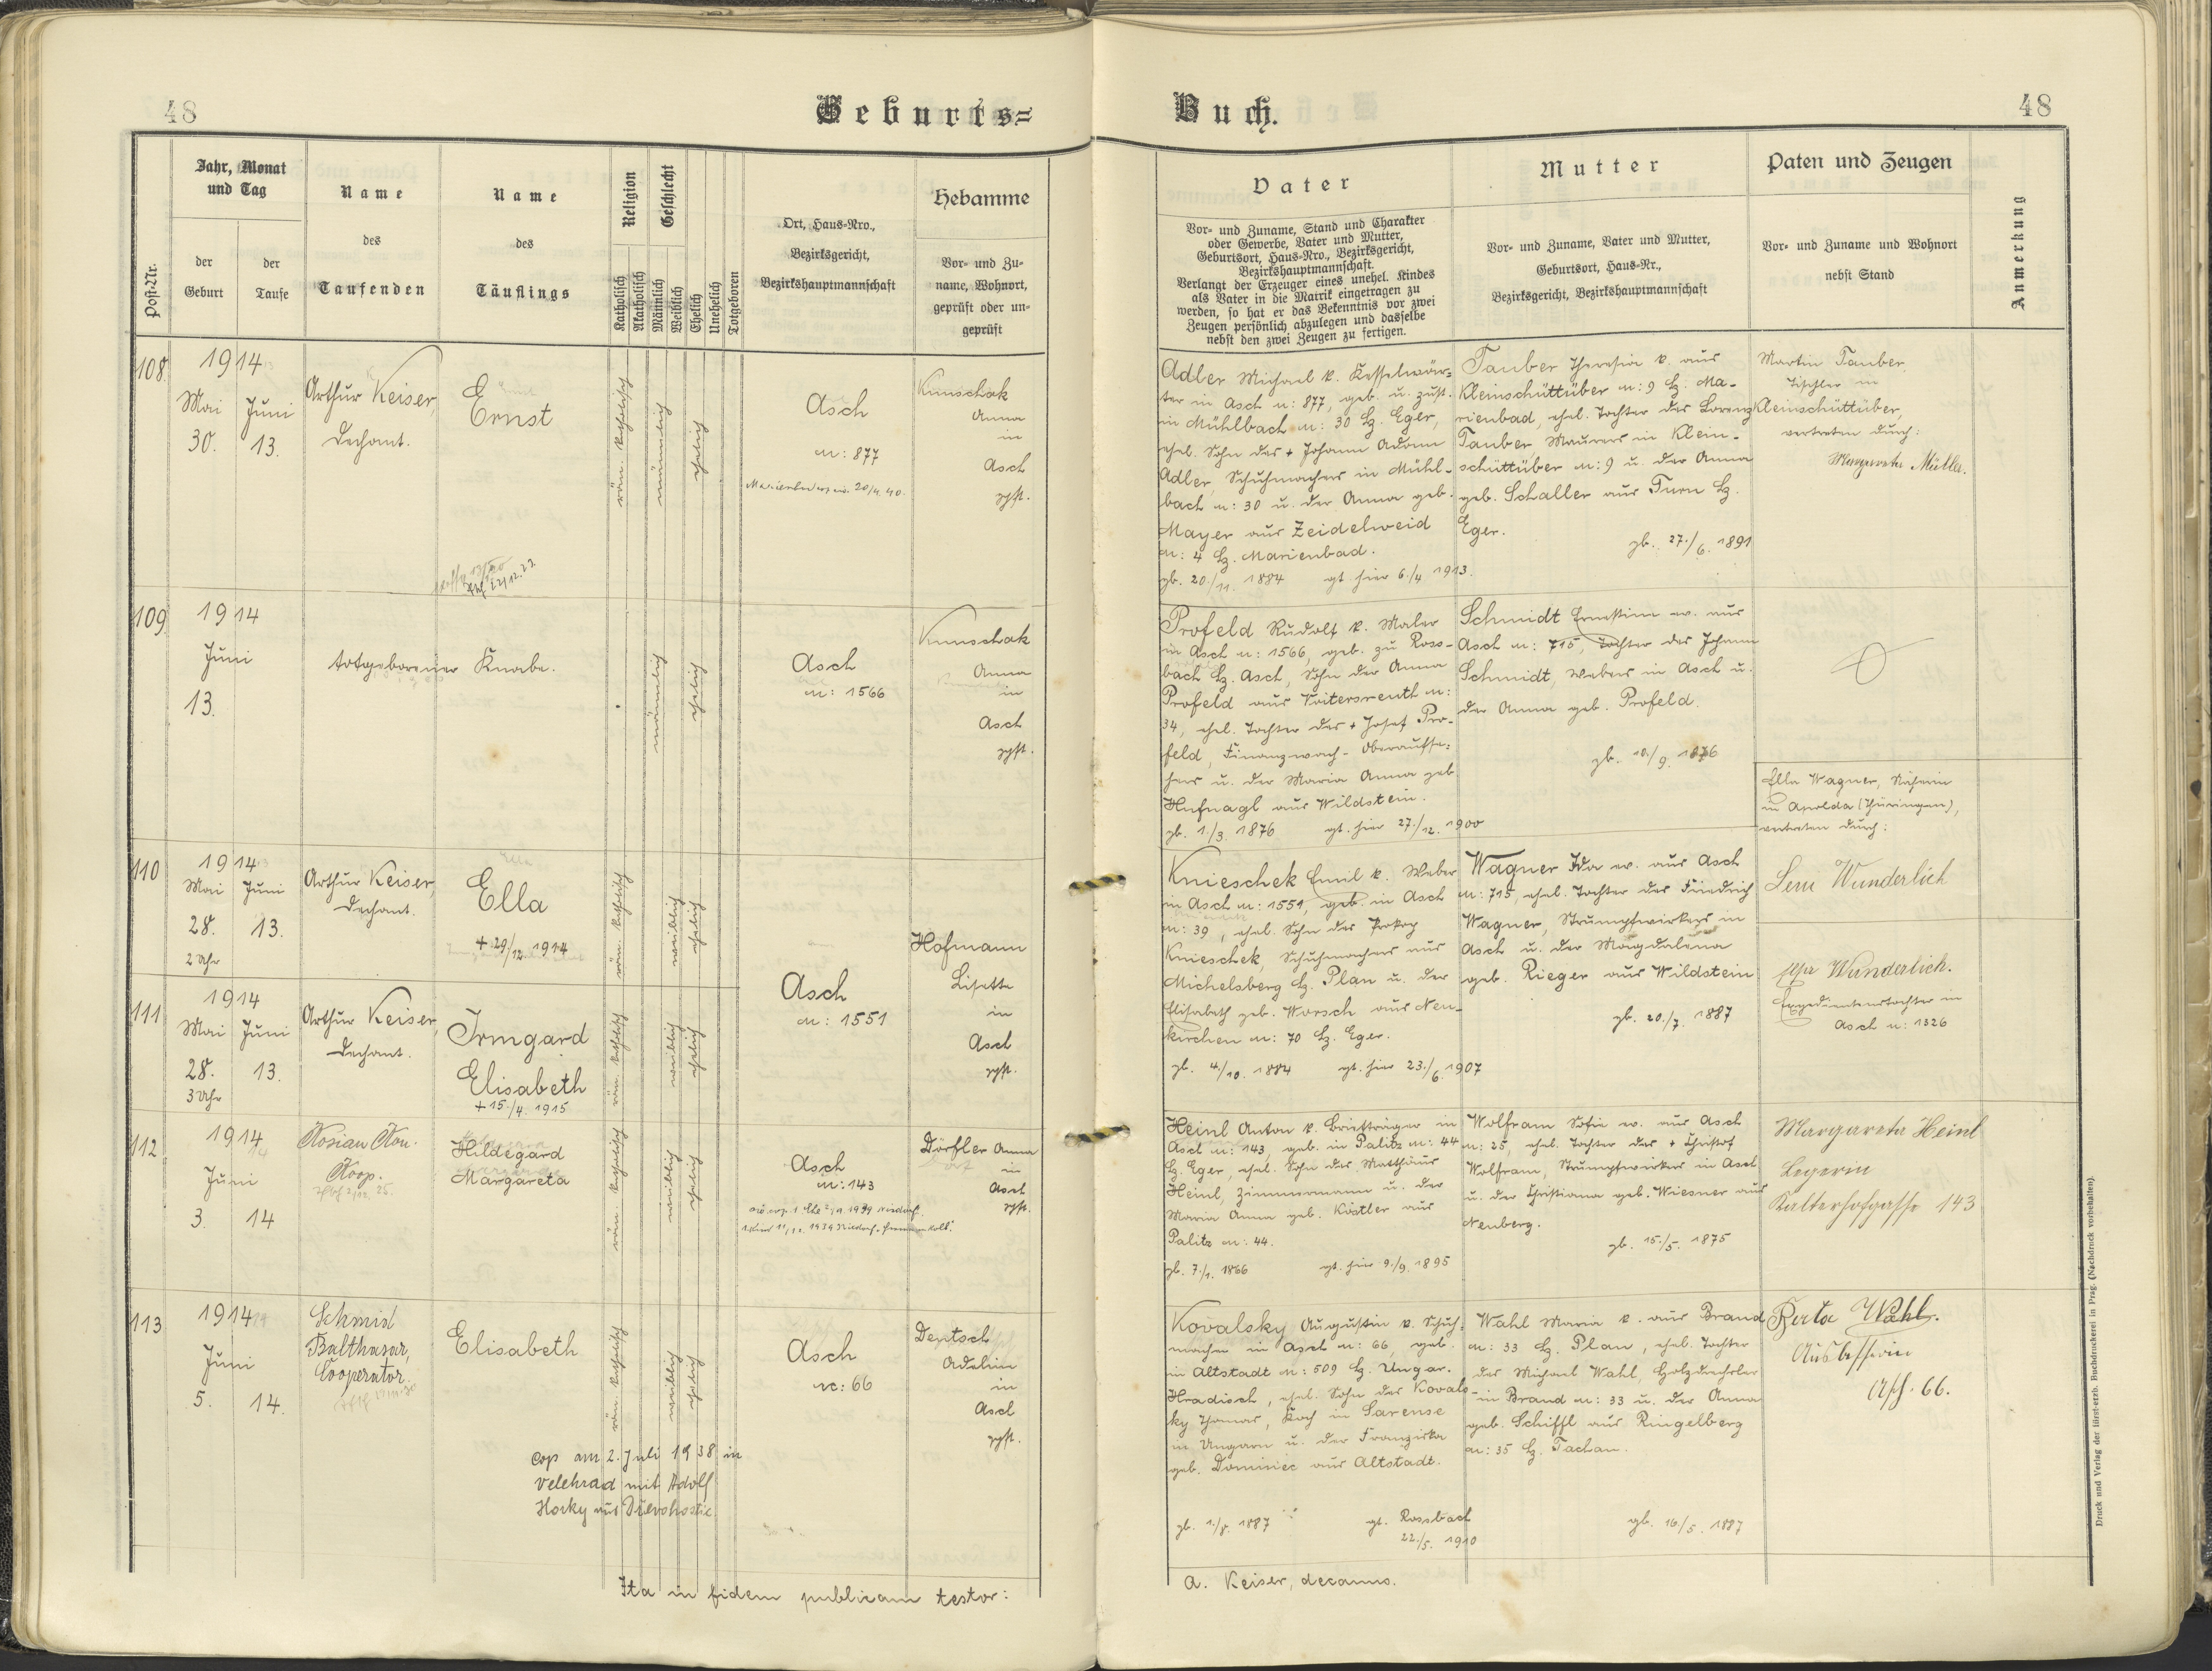 48
Geburts=
Post-Nr.
Jahr, Monat
und Tag
der
Geburt
der
Taufe
Name
des
Taufenden
Name
des
Täuflings
Religion
Katholisch
Akatholisch
Geschlecht
Männlich
Weiblich
Ehelich
Unehelich
Totgeboren
Ort, Haus-Nro.,
Bezirksgericht,
Bezirkshauptmannschaft
Hebamme
Vor- und Zu-
name, Wohnort,
geprüft oder un-
geprüft
108.
1914
Mai
30.
Juni
13.
Arthur Keiser,
Dechant.
Ernst
röm. katholisch
männlich
ehelich
Asch
n: 877
20/4. 40.
Kunschak
Anna
in
Asch
gpft.
109.
1914
Juni
13.
totgeborener Knabe.
männlich
ehelich
Asch
n: 1566
Kunschak
Anna
in
Asch
gpft.
110
1914
Mai
28.
2 Uhr
Juni
13.
Arthur Keiser,
Dechant.
Ella
+ 29./12. 1914
röm. katholisch
weiblich
ehelich
Asch
n: 1551
Hofmann
Lisette
in
Asch
gpft.
111
1914
Mai
28.
3 Uhr
Juni
13.
Arthur Keiser,
Dechant.
Irmgard
Elisabeth
+ 15./4. 1915
röm. katholisch
weiblich
ehelich
112
1914
Juni
3.
14
Koop.
Hildegard
Margareta
röm. katholisch
weiblich
ehelich
Asch
n: 143
Dörfler Anna
in
Asch
gpft.
113
1914
Juni
5.
14.
Schmid
Balthasar,
Cooperator.
Elisabeth
röm. katholisch
weiblich
ehelich
Asch
n: 66
Deutsch
Adeline
in
Asch
gpft.
cop am 2. Juli 1938 in
Velehrad mit Adolf
Horky aus Dřevohostic
Ita in fidem publicam testor:
Buch.
48
Vater
Vor- und Zuname, Stand und Charakter
oder Gewerbe, Vater und Mutter,
Geburtsort, Haus-Nro., Bezirksgericht,
Bezirkshauptmannschaft.
Verlangt der Erzeuger eines unehel. Kindes
als Vater in die Matrik eingetragen zu
werden, so hat er das Bekenntnis vor zwei
Zeugen persönlich abzulegen und dasselbe
nebst den zwei Zeugen zu fertigen.
Mutter
Vor- und Zuname, Vater und Mutter,
Geburtsort, Haus-Nr.,
Bezirksgericht, Bezirkshauptmannschaft
Paten und Zeugen
Vor- und Zuname und Wohnort
nebst Stand
Anmerkung
Adler Michael k. Kesselwär=
ter in Asch n: 877, geb. u. zust.
in Mühlbach n: 30 Bz. Eger,
ehel. Sohn des + Johann Adam
Adler, Schuhmachers in Mühl-
bach n: 30 u. der Anna geb.
Mayer aus Zeidelweid
n: 4 Bz. Marienbad.
gb. 20./11. 1884 gt. hier 6./4 1913.
Tauber Theresia k. aus
Kleinschüttüber n: 9 Bz. Ma-
rienbad, ehel. Tochter des Lorenz
Tauber Maurers in Klein-
schüttüber n: 9 u. der Anna
geb. Schaller aus Turn Bz.
Eger.
gb. 27./6. 1891
Martin Tauber,
Tischler in
Kleinschüttüber,
vertreten durch:
Margareta Müller.
Profeld Rudolf k. Maler
in Asch n: 1566, geb. zu Ross-
bach Bz. Asch, Sohn der Anna
Profeld aus Voitersreuth n:
34, ehel. Tochter des + Josef Pro-
feld, Finanzwach-Oberaufse-
hers u. der Maria Anna geb
Hufnagl aus Wildstein.
gb. 1./3. 1876 gt. hier 27./12. 1900
Schmidt Ernestine ev. aus
Asch n: 715, Tochter des Johann
Schmidt, Webers in Asch u.
der Anna geb. Profeld.
gb. 10./9. 1876
Ella Wagner, Näherin
in Apolda (Thüringen),
vertreten durch:
Knieschek Emil k. Weber
in Asch n: 1551, geb. in Asch
n: 39, ehel. Sohn des Prokop
Knieschek, Schuhmachers aus
Michelsberg Bz. Plan u. der
Elisabeth geb. Worsch aus Neu-
kirchen n: 70 Bz. Eger.
gb. 4./10. 1884 gt. hier 23./6. 1907
Wagner Ida ev. aus Asch
n: 715, ehel. Tochter des Friedrich
Wagner, Strumpfwirkers in
Asch u. der Magdalena
geb. Rieger aus Wildstein
gb. 20./7. 1887
Leni Wunderlich
Wunderlich.
Expedientenstochter in
Asch n: 1326
Heinl Anton k. Briefträger in
Asch n: 143, geb. in Palitz n: 44
Bz. Eger, ehel. Sohn des Matthäus
Heinl, Zimmermann u. der
Maria Anna geb. Köstler aus
Palitz n: 44.
gb. 7./1. 1866 gt. hier 9./9. 1895
Wolfram Sofie ev. aus Asch
n: 25, ehel. Tochter des + Christof
Wolfram, Strumpfwirkers in Asch
u. der Christiana geb. Wiesner aus
Neuberg.
gb. 15./5. 1875
Margareta Heinl
Legerin
Kalterhofgasse 143
Kovalsky Augustin k. Schuh-
macher in Asch n: 66, geb.
in Altstadt n: 509 Bz. Ungar.
Hradisch, ehel. Sohn des Kovals-
ky Thomas, Koch in Sarense
in Ungarn u. der Franziska
geb. Dominiec aus Altstadt.
gb. 1./8. 1887 gt. Rossbach
22./5. 1910
Wahl Maria k. aus Brand
n: 33 Bz. Plan, ehel. Tochter
des Michael Wahl, Holzdrechsler
in Brand n: 33 u. der Anna
geb. Schiffl aus Ringelberg
n: 35 Bz. Tachau.
gb. 16./5. 1887
Berta Wahl.
Ausbesserin
Asch. 66.
A. Keiser, decanus.
Druck und Verlag der fürst-erzb. Buchdruckerei in Prag. (Nachdruck vorbehalten).